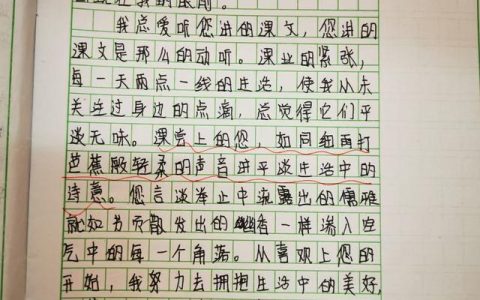 我总爱听您讲的课文，您讲的
课文是那么的动听。课业的紧张，
每一天两点一线的生活，使我从未
关注过身边的点滴，总觉得它们平
淡无味。课堂上的您，如同细雨打
芭蕉般轻柔的声音讲平淡生活中的
诗意。您言谈举止中流露出的儒雅
就如书页散发出的幽香一样渗入空
气中的每一个角落。从喜欢上您的
开始，我努力去拥抱生活中的美好，